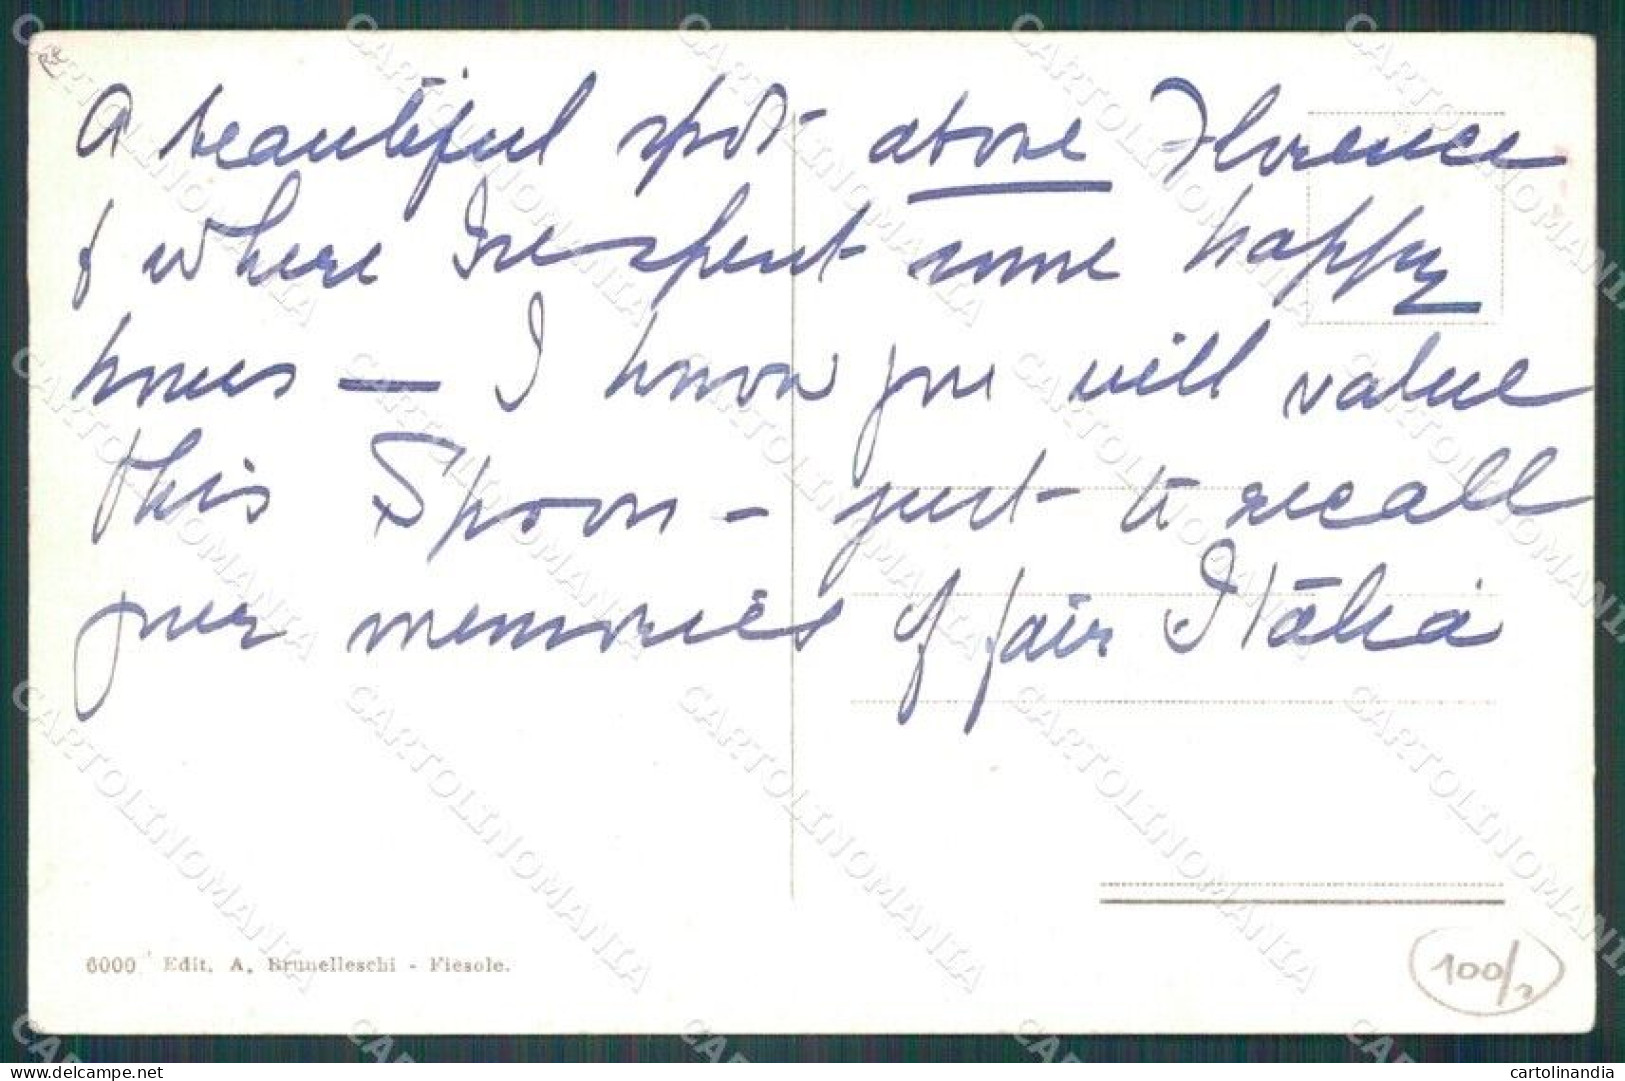 A beautiful spot above Florence
& where I've spent some happy
hours — I know you will value
this Spoon - just to recall
your memories of fair Italia
6000 Edit. A. Brunelleschi - Fiesole.
100/2
CARTOLINOMANIA
delcampe.net
cartolinandia